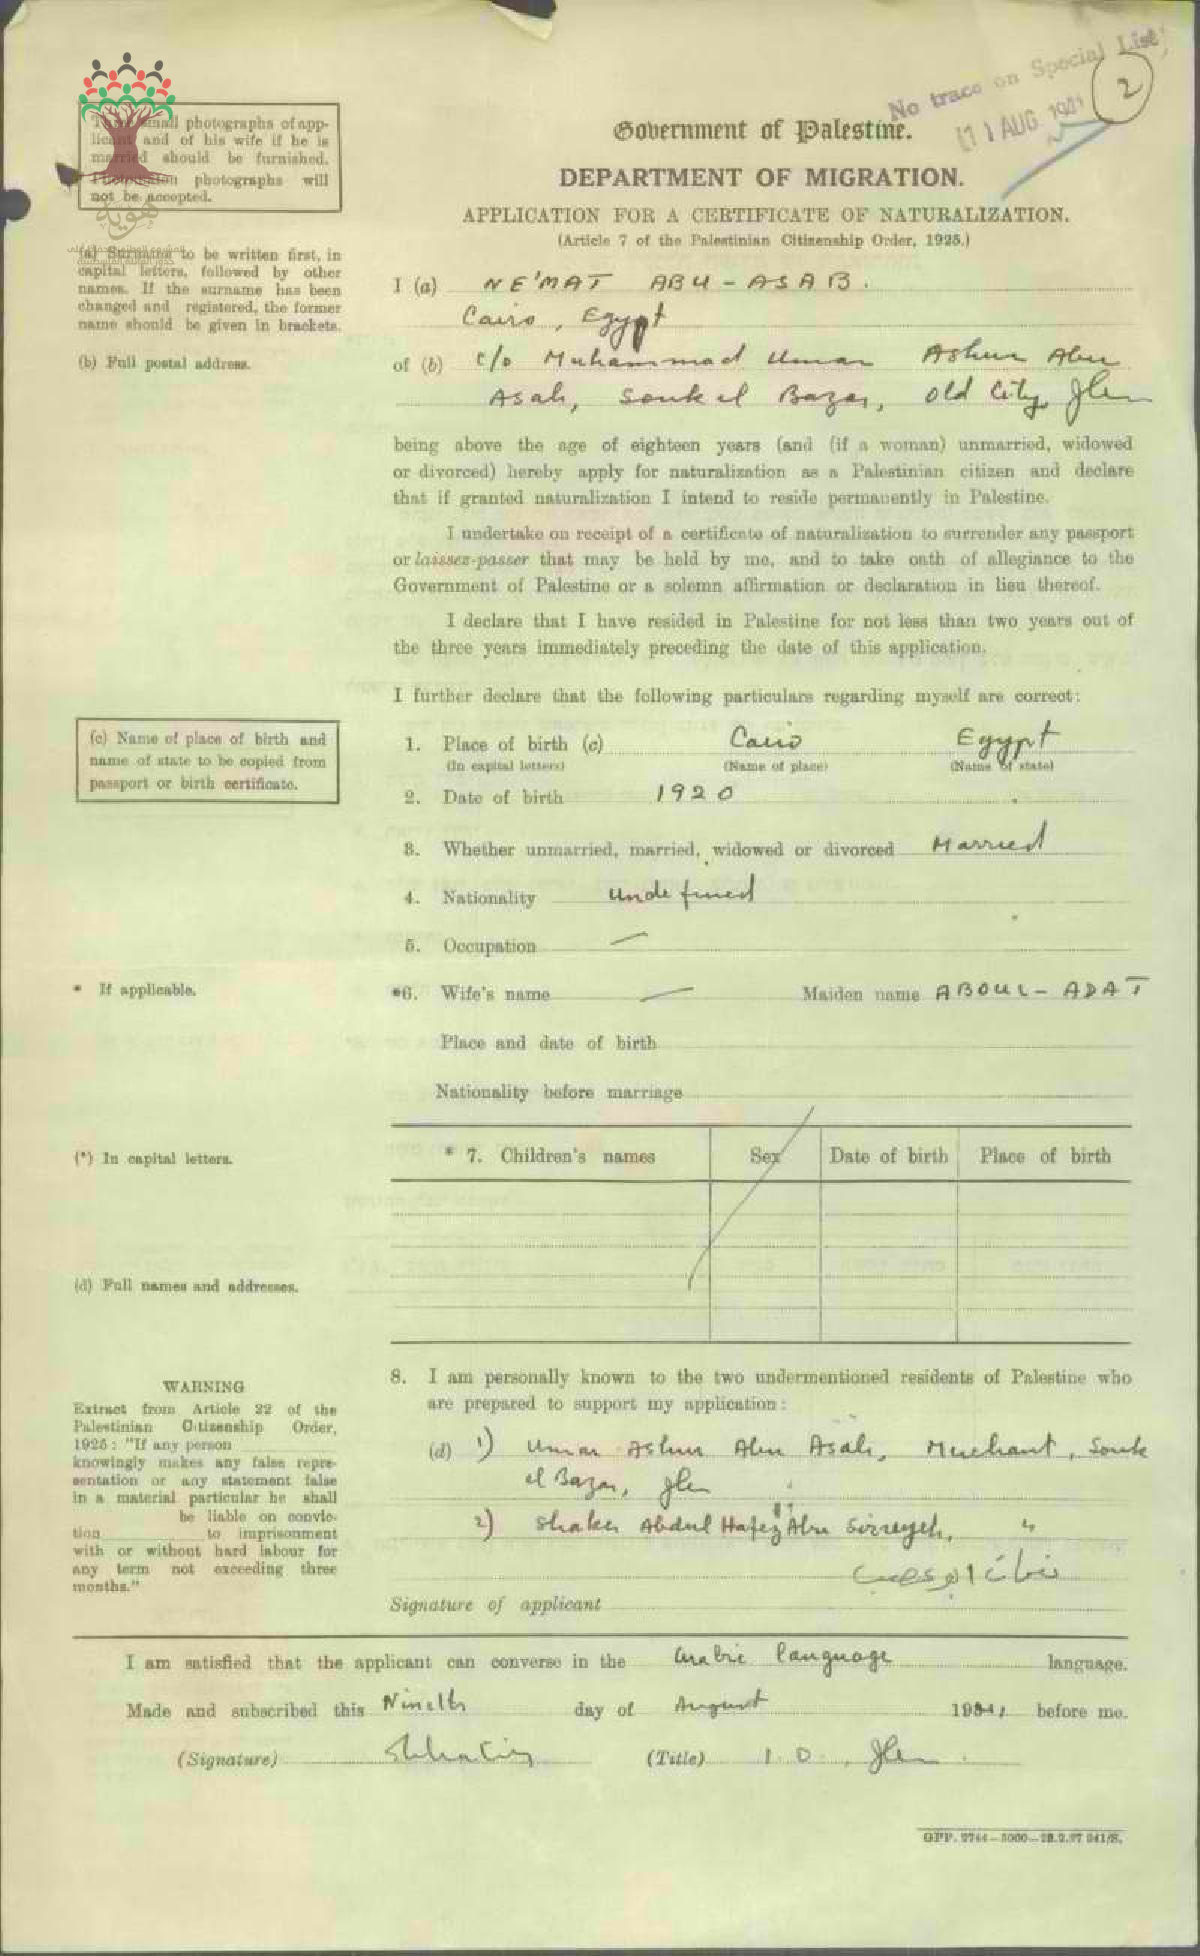 No trace on Special List
11 AUG 1941
2
Two small photographs of app-
licant and of his wife if he is
married should be furnished.
photographs will
not be accepted.
هوية
Government of Palestine.
DEPARTMENT OF MIGRATION.
APPLICATION FOR A CERTIFICATE OF NATURALIZATION.
(Article 7 of the Palestinian Citizenship Order, 1925.)
(a) Surname to be written first, in
capital letters, followed by other
names. If the surname has been
changed and registered, the former
name should be given in brackets.
I (a) NE'MAT ABU-ASAB.
Cairo, Egypt
(b) Full postal address.
of (b) c/o Muhammad Umar Ashur Abu
Asab, Souk el Bazar, Old City, Jlem
being above the age of eighteen years (and (if a woman) unmarried, widowed
or divorced) hereby apply for naturalization as a Palestinian citizen and declare
that if granted naturalization I intend to reside permanently in Palestine.
I undertake on receipt of a certificate of naturalization to surrender any passport
or laissez-passer that may be held by me, and to take oath of allegiance to the
Government of Palestine or a solemn affirmation or declaration in lieu thereof.
I declare that I have resided in Palestine for not less than two years out of
the three years immediately preceding the date of this application.
I further declare that the following particulars regarding myself are correct:
(c) Name of place of birth and
name of state to be copied from
passport or birth certificate.
1. Place of birth (c) Cairo Egypt
(In capital letters) (Name of place) (Name of state)
2. Date of birth 1920
3. Whether unmarried, married, widowed or divorced Married
4. Nationality undefined
5. Occupation —
* If applicable.
*6. Wife's name — Maiden name ABOUL-ADAT
Place and date of birth
Nationality before marriage
(*) In capital letters.
* 7. Children's names Sex Date of birth Place of birth
(d) Full names and addresses.
8. I am personally known to the two undermentioned residents of Palestine who
are prepared to support my application:
(d) 1) Umar Ashur Abu Asab, Merchant, Souk
el Bazar, Jlem
2) Shaker Abdul Hafez Abu Sirreyeh, "
نعمات ابو عصب
Signature of applicant
WARNING
Extract from Article 22 of the
Palestinian Citizenship Order,
1925: "If any person
knowingly makes any false repre-
sentation or any statement false
in a material particular he shall
be liable on convic-
tion to imprisonment
with or without hard labour for
any term not exceeding three
months."
I am satisfied that the applicant can converse in the Arabic language language.
Made and subscribed this Ninth day of August 1941 before me.
(Signature) (Title) I.O., Jlem.
GPP. 2744—5000—23.2.37 241/S.